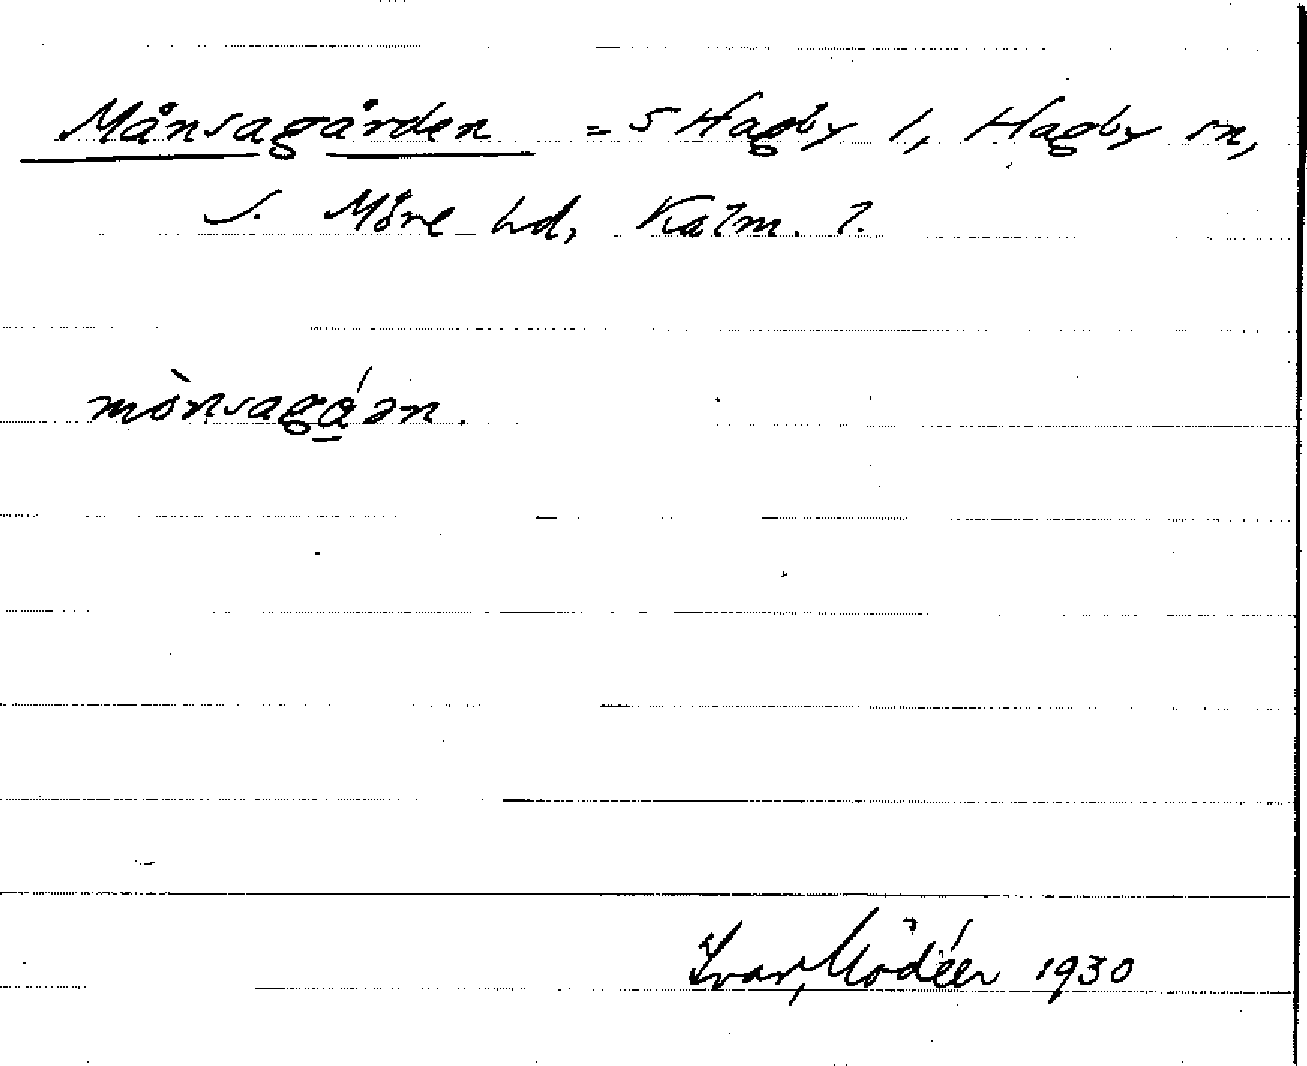 Månsagården = S Hagby 1, Hagby sn,
S. Möre hd, Kalm. l.
mònsagá̱ən.
Ivar Modéer 1930